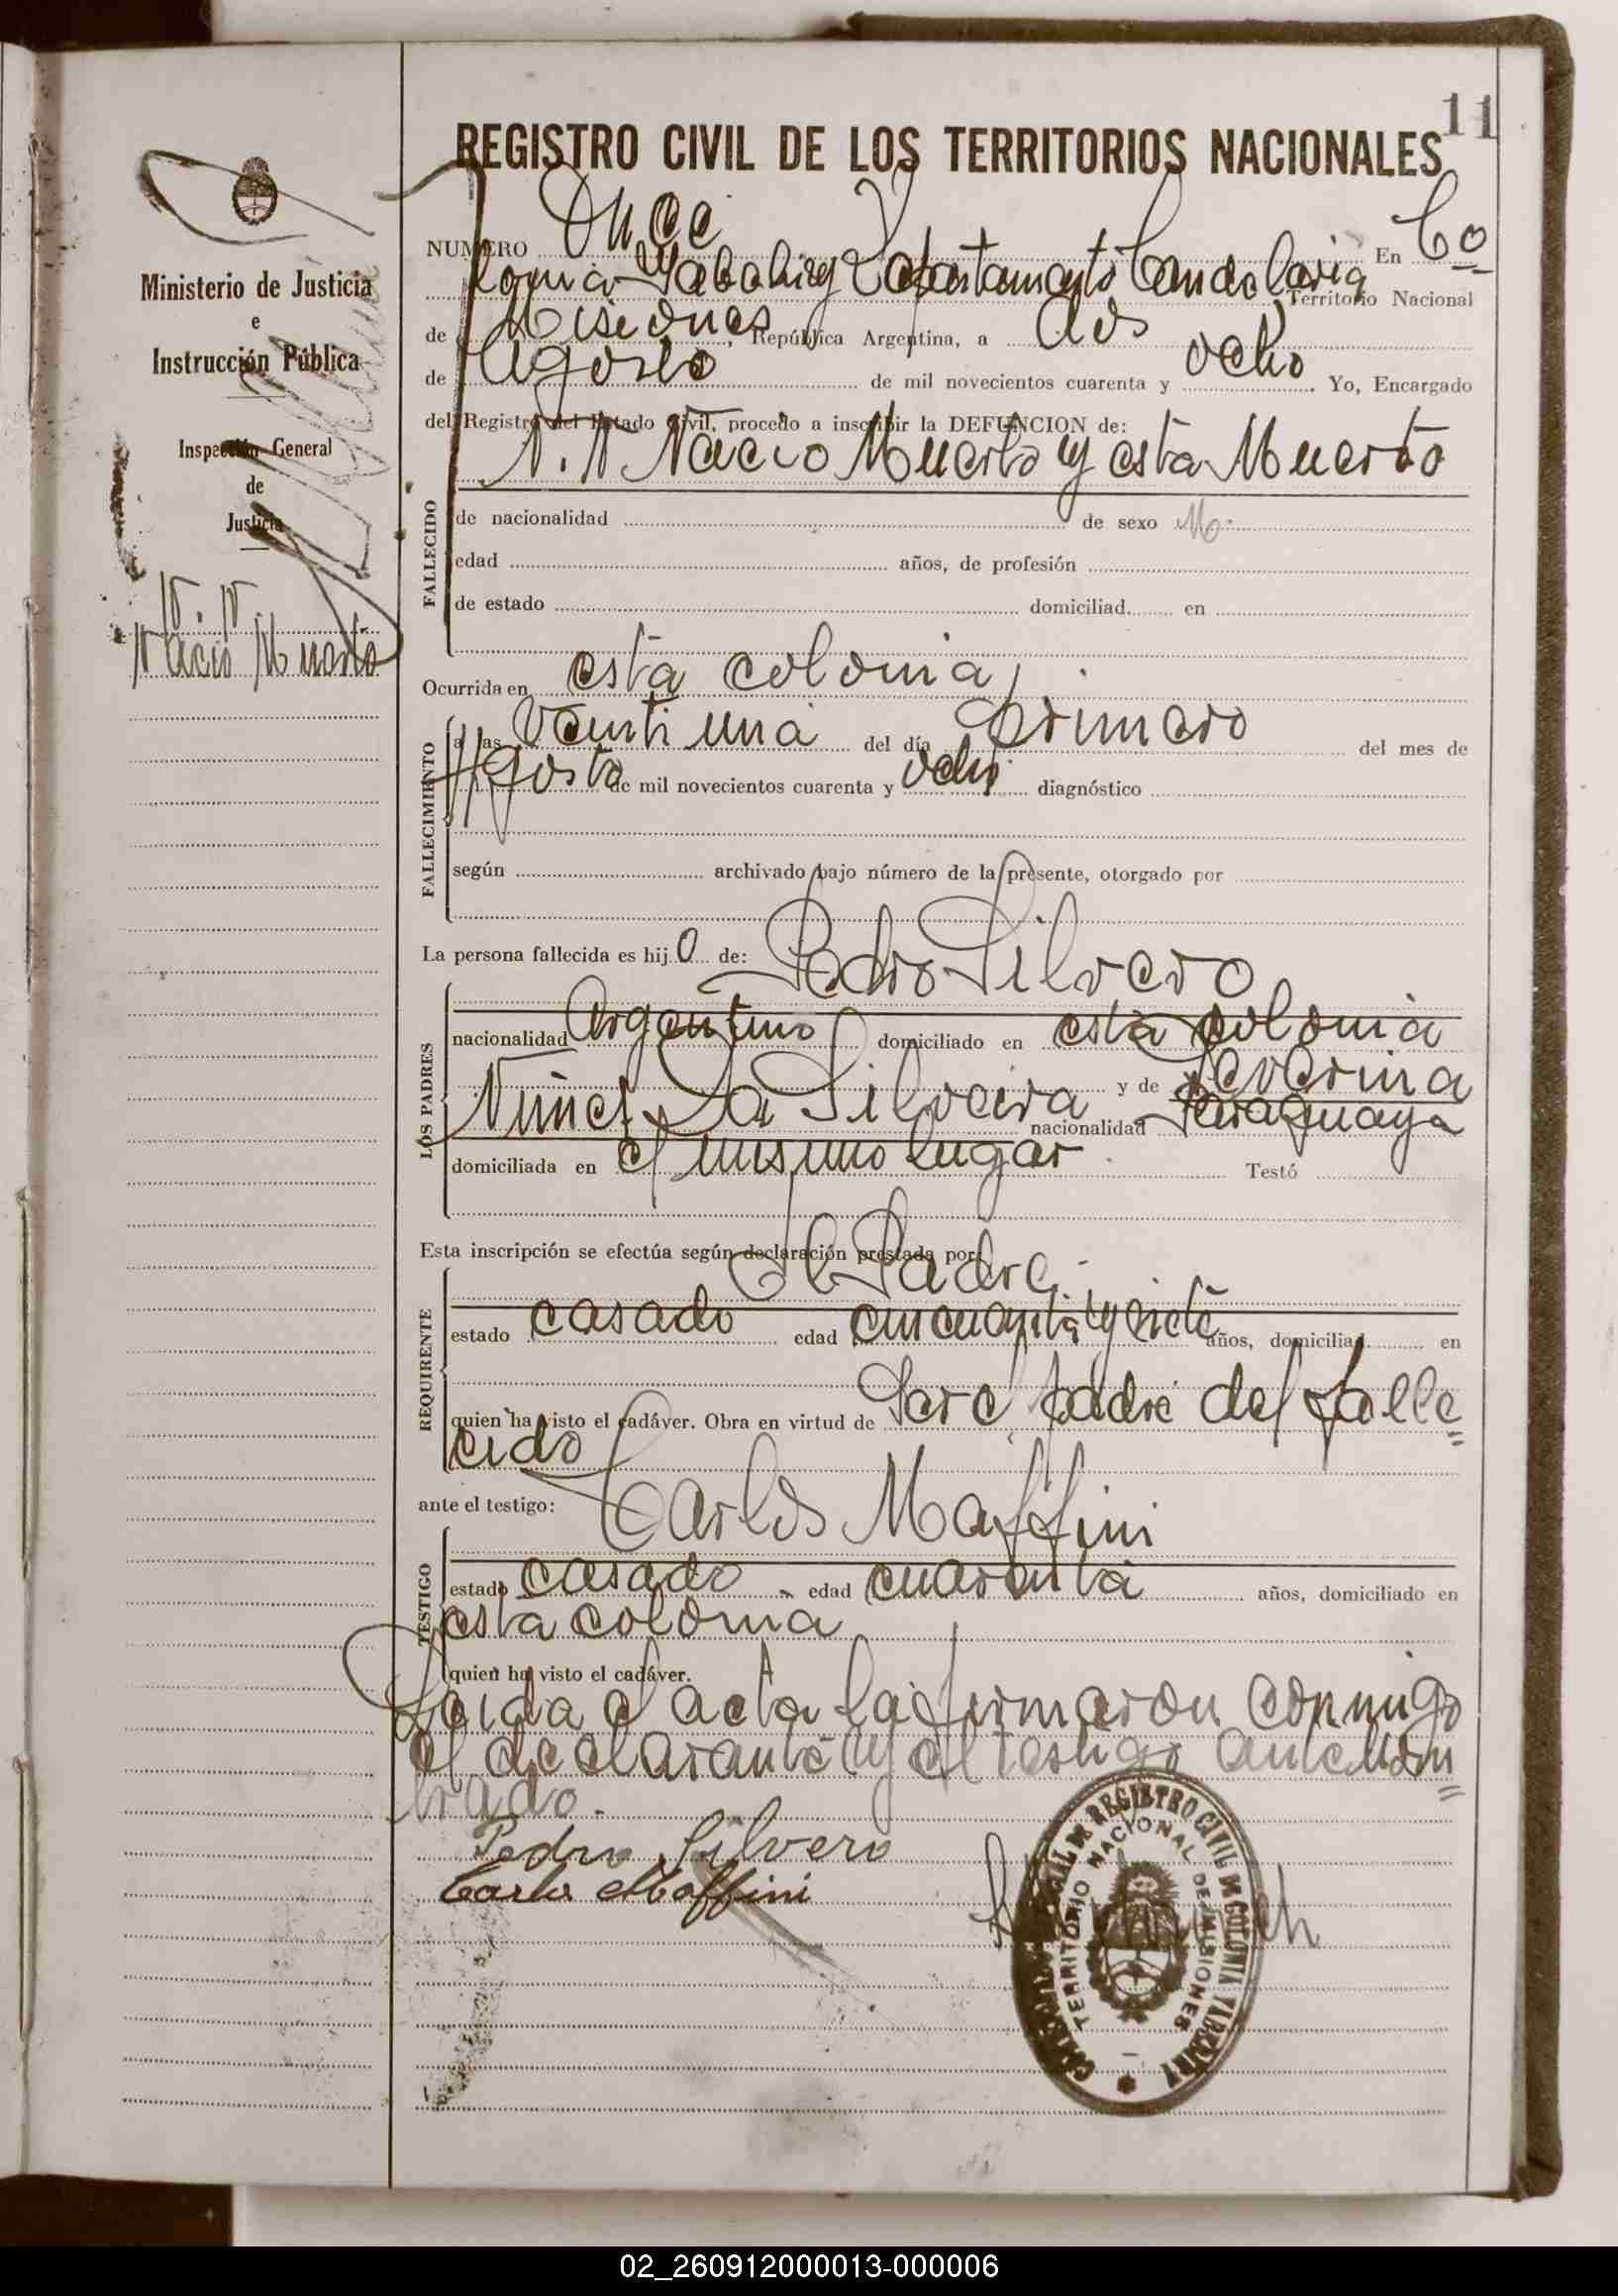 11
REGISTRO CIVIL DE LOS TERRITORIOS NACIONALES
Ministerio de Justicia
e
Instrucción Pública
Inspección General
de
Justicia
N. N
Nacio Muerto
NUMERO Once En Co
lonia Yabebiry Departamento Candelaria Territorio Nacional
de Misiones, República Argentina, a dos
de Agosto de mil novecientos cuarenta y ocho. Yo, Encargado
del Registro del Estado Civil, procedo a inscribir la DEFUNCION de:
N. N Nacio Muerto y esta Muerto
FALLECIDO
de nacionalidad de sexo M.
edad años, de profesión
de estado domiciliad en
Ocurrida en esta colonia,
FALLECIMIENTO
a las Veinti una del día primero del mes de
Agosto de mil novecientos cuarenta y ocho diagnóstico
según archivado bajo número de la presente, otorgado por
La persona fallecida es hijo de: Pedro Silvero
LOS PADRES
nacionalidad Argentino domiciliado en esta colonia
y de Severina
Nuñes Da Silveira nacionalidad Paraguaya
domiciliada en el mismo lugar Testó
Esta inscripción se efectúa según declaración prestada por: El Padre
REQUIRENTE
estado casado edad cincuenta y siete años, domiciliad en
quien ha visto el cadáver. Obra en virtud de Ser el padre del falle
cido
ante el testigo: Carlos Maffini
TESTIGO
estado casado edad cuarenta años, domiciliado en
esta colonia
quien ha visto el cadáver.
Leida el acta la firmaron conmigo
el declarante y el testigo antenom
brado.
Pedro Silvero
Carlos Maffini
REGISTRO CIVIL DE COLONIA YABEBIRY
TERRITORIO NACIONAL DE MISIONES
02_260912000013-000006